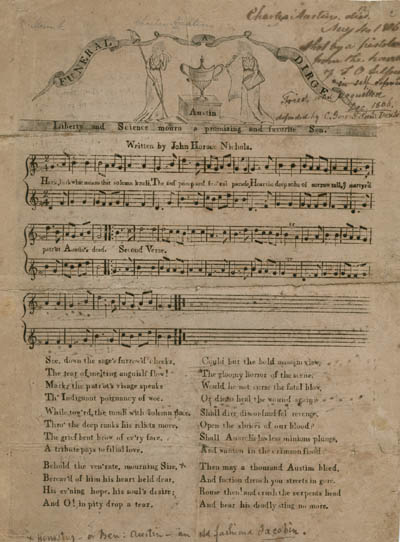 Charles Austin, died
Aug 4 1806
shot by a pistol
from the hand
of T. O. Selfridge
in self defence
Tried, and acquitted
Dec. 1806.
defended by C. Gore S. Dexter
FUNERAL A DIRGE
Austin
Liberty and Science mourn a promising and favorite Son.
Written by John Horace Nichols.
Hark, hark what means this solemn knell, The sad pomp and fun'ral parade, Hoarse in deep echo of sorrow tell, martyr'd
patriot Austin's dead. Second Verse.
See, down the sage's furrow'd cheeks,
The tear of melting anguish flow!
Mark, the patriot's visage speaks
Th' Indignant poignancy of woe.
While, tow'rd the tomb with solemn pace,
Thro' the deep ranks his relicts move,
The grief bent brow of ev'ry face,
A tribute pays to filial love.
Behold the ven'rate, mourning Sire,
Bereav'd of him his heart held dear,
His ev'ning hope, his soul's desire;
And O! in pity drop a tear.
Could but the bold assassin view,
The gloomy horror of the scene,
Would he not curse the fatal blow,
Or die to heal the wound again
Shall dier discord and fel revenge,
Open the sluices of our blood
Shall Anarchs lawless minions plunge,
And wanton in the crimson flood
Then may a thousand Austins bleed,
And faction drench you streets in gore.
Rouse then! and crush the serpents head
And hear his deadly sting no more.
Ben: Austin - an old fashiond Jacobin.